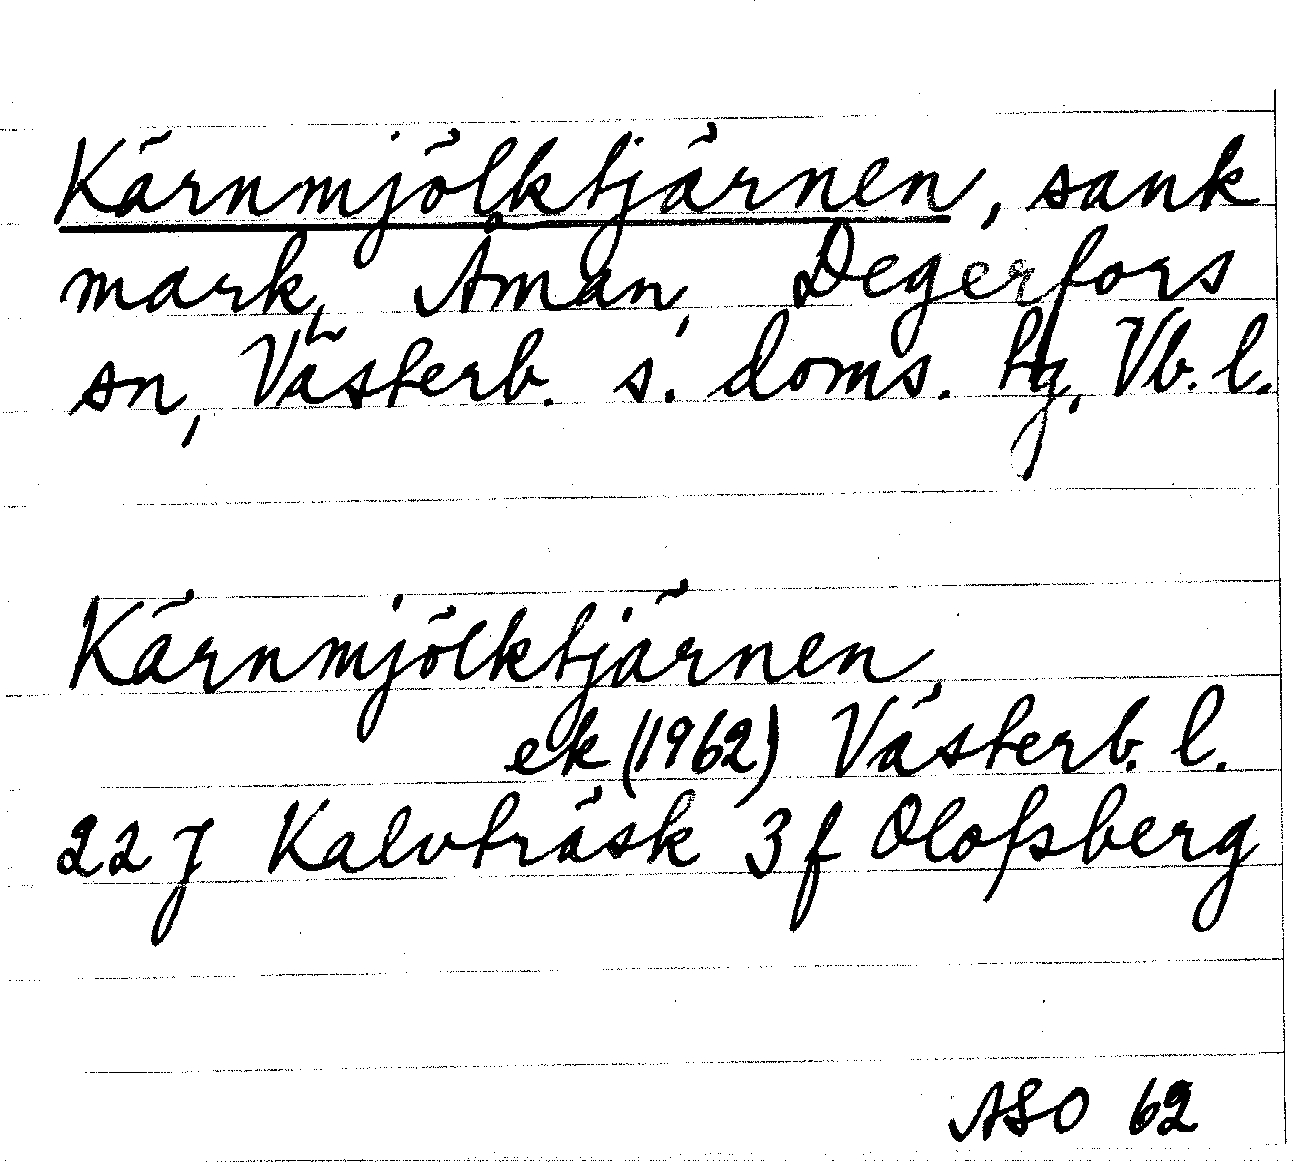 Kärnmjölktjärnen, sank
mark, Åman, Degerfors
sn, Västerb. s. doms. tg, Vb. l.
Kärnmjölktjärnen,
ek (1962) Västerb. l.
22 J Kalvträsk 3 f Olofsberg
ASO 62